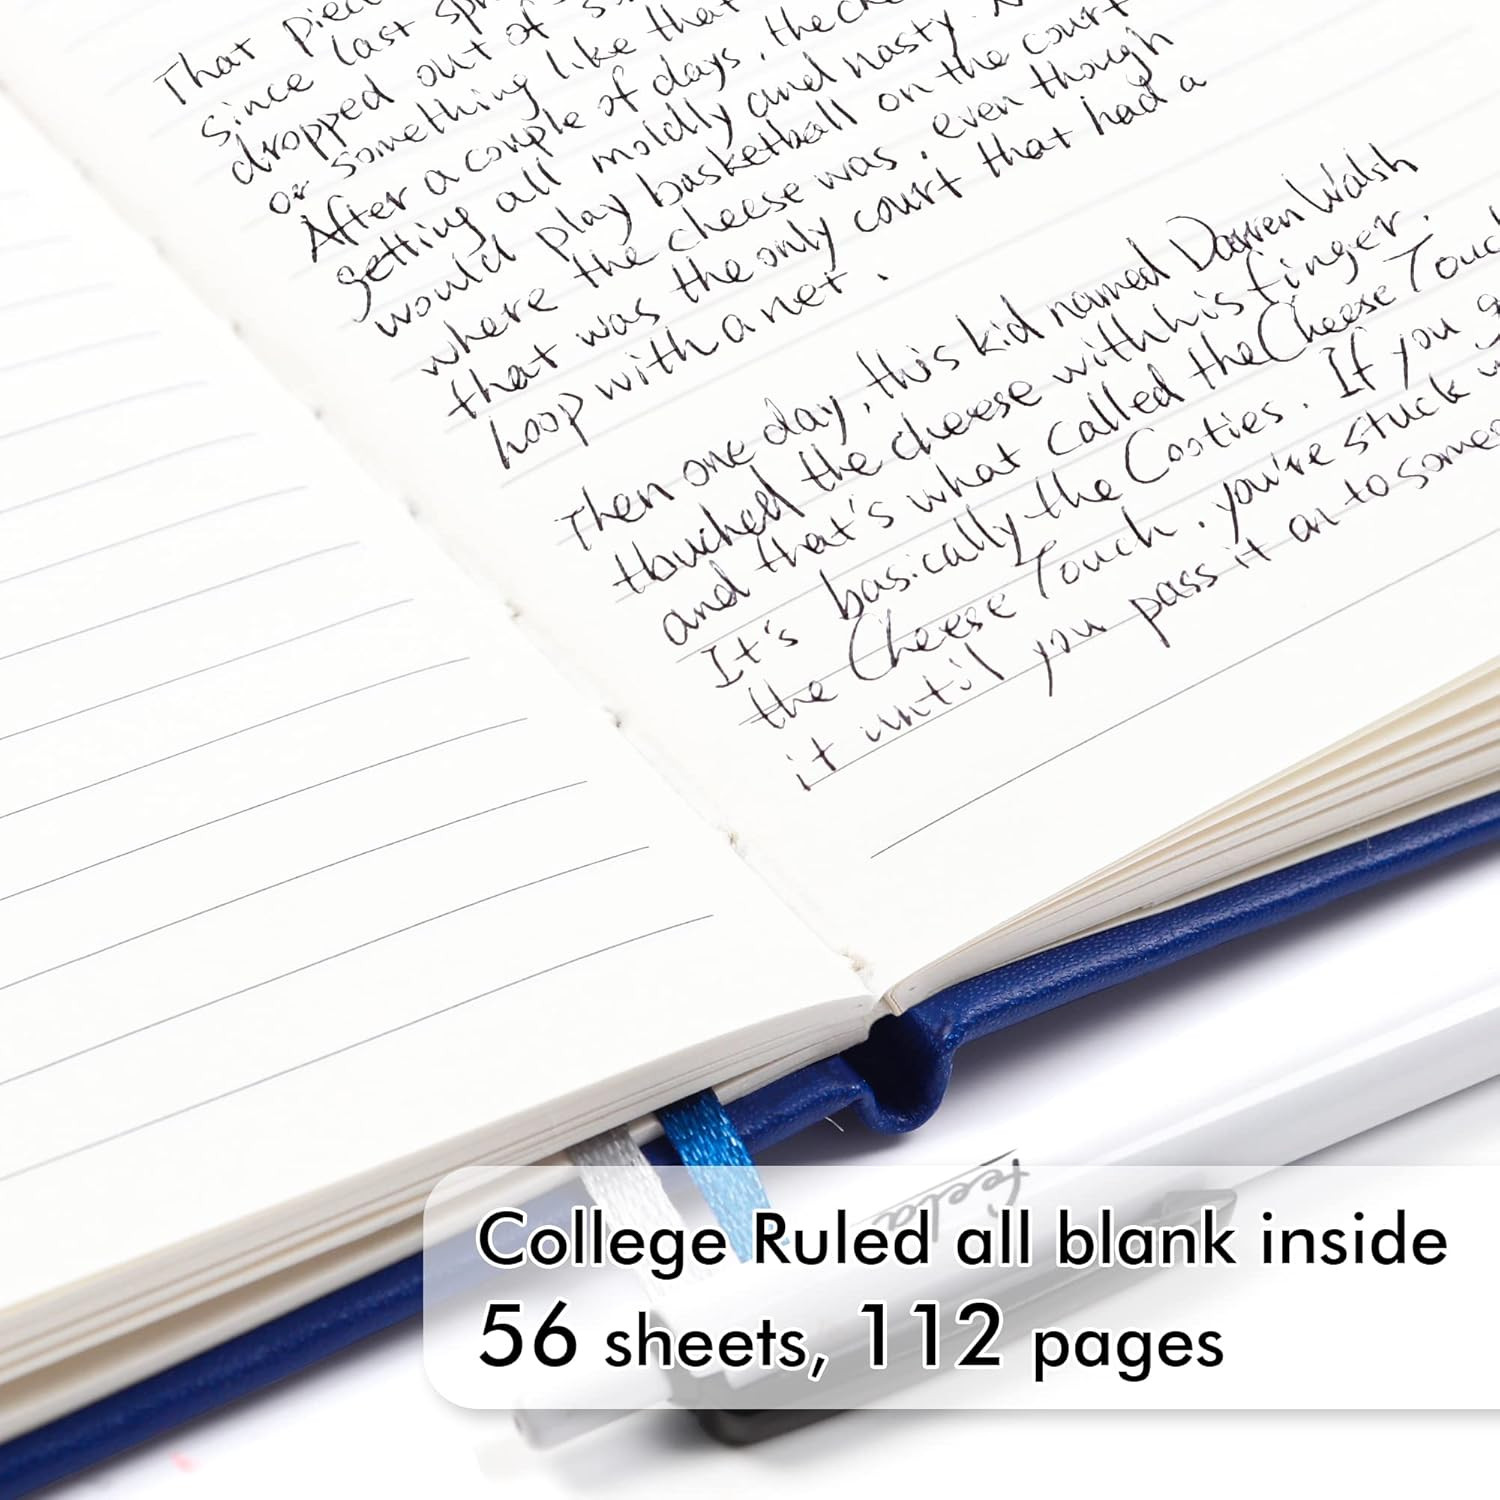 That piec
since last spr
dropped out of s
or something like that
After a couple of days, the che
getting all moldly and nasty. N
would play basketball on the court
where the cheese was, even though
that was the only court that had a
hoop with a net.
Then one day, this kid named Darren Walsh
touched the cheese with his finger.
and that's what called the Cheese Touch
It's basically the Cooties. If you g
the Cheese Touch, you're stuck w
it until you pass it on to somee
feela
College Ruled all blank inside
56 sheets, 112 pages